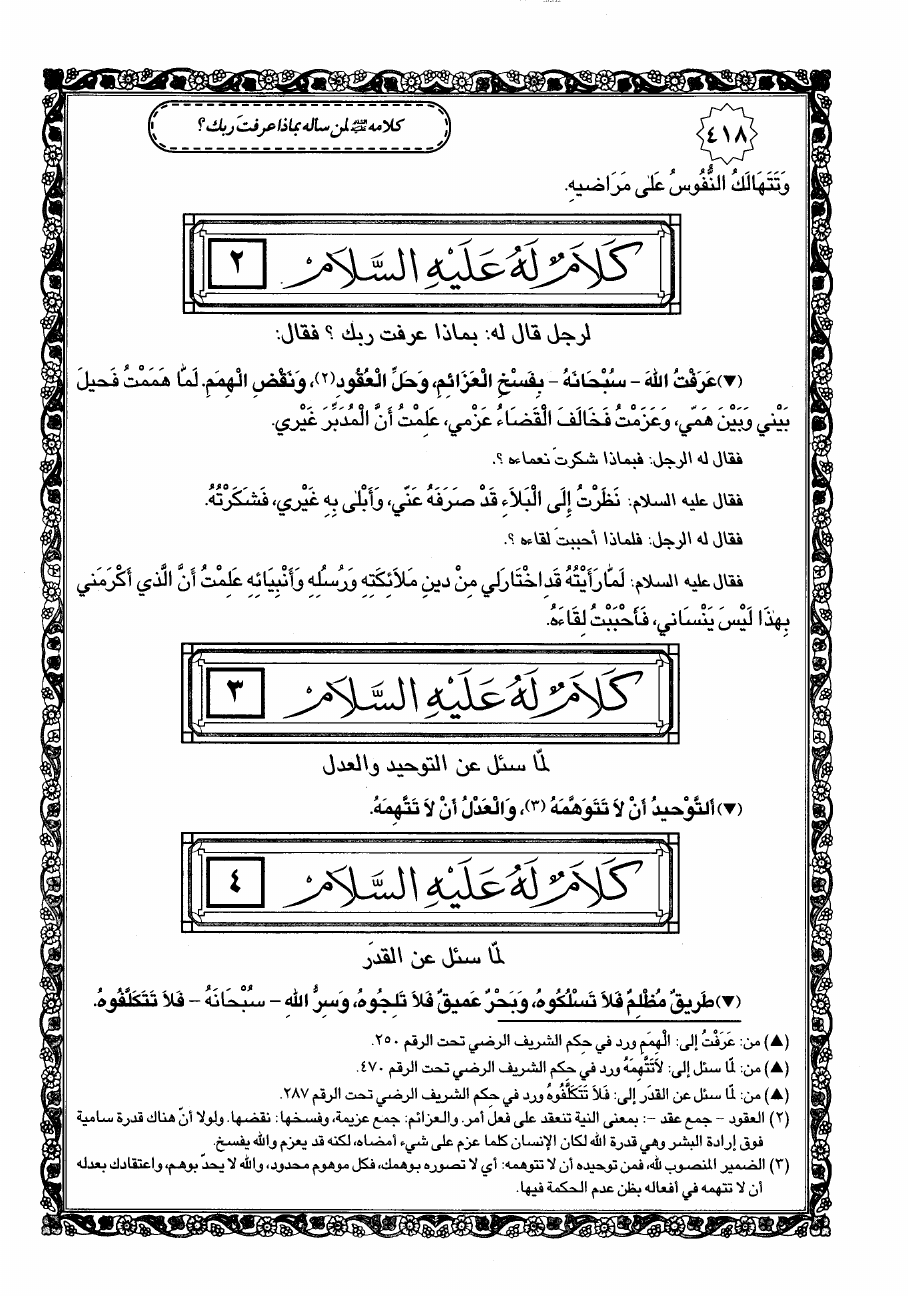 ٤١٨
كلامه ﷺ لمن سأله بماذا عرفتَ ربك؟
وَتَتَهَالَكُ النُّفُوسُ عَلىٰ مَرَاضيهِ.
كَلَامٌ لَهُ عَلَيْهِ السَّلَامُ ٢
لرجل قال له: بماذا عرفت ربك ؟ فقال:
(▼) عَرَفْتُ اللهَ – سُبْحَانَهُ – بِفَسْخِ الْعَزَائِمِ، وَحَلِّ الْعُقُودِ(٢)، وَنَقْضِ الْهِمَمِ. لَمَّا هَمَمْتُ فَحيلَ
بَيْني وَبَيْنَ هَمّي، وَعَزَمْتُ فَخَالَفَ الْقَضَاءُ عَزْمي، عَلِمْتُ أَنَّ الْمُدَبِّرَ غَيْري.
فقال له الرجل: فبماذا شكرتَ نعماءه ؟.
فقال عليه السلام: نَظَرْتُ إِلَى الْبَلاَءِ قَدْ صَرَفَهُ عَنّي، وَأَبْلىٰ بِهِ غَيْري، فَشَكَرْتُهُ.
فقال له الرجل: فلماذا أحببتَ لقاءه ؟.
فقال عليه السلام: لَمَّا رَأَيْتُهُ قَدِ اخْتَارَ لي مِنْ دينِ مَلاَئِكَتِهِ وَرُسُلِهِ وَأَنْبِيَائِهِ عَلِمْتُ أَنَّ الَّذي أَكْرَمَني
بِهٰذَا لَيْسَ يَنْسَاني، فَأَحْبَبْتُ لِقَاءَهُ.
كَلَامٌ لَهُ عَلَيْهِ السَّلَامُ ٣
لمّا سئل عن التوحيد والعدل
(▼) اَلتَّوْحيدُ أَنْ لاَ تَتَوَهَّمَهُ (٣)، وَالْعَدْلُ أَنْ لاَ تَتَّهِمَهُ.
كَلَامٌ لَهُ عَلَيْهِ السَّلَامُ ٤
لمّا سئل عن القدَر
(▼) طَريقٌ مُظْلِمٌ فَلاَ تَسْلُكُوهُ، وَبَحْرٌ عَميقٌ فَلاَ تَلِجُوهُ، وَسِرُّ اللهِ – سُبْحَانَهُ – فَلاَ تَتَكَلَّفُوهُ.
(▲) من: عَرَفْتُ إلى: الْهِمَمِ ورد في حِكم الشريف الرضي تحت الرقم ٢٥٠.
(▲) من: لمّا سئل إلى: لاَتَتَّهِمَهُ ورد في حكم الشريف الرضي تحت الرقم ٤٧٠.
(▲) من: لمّا سئل عن القدَر إلى: فَلاَ تَتَكَلَّفُوهُ ورد في حكم الشريف الرضي تحت الرقم ٢٨٧.
(٢) العقود – جمع عقد –: بمعنى النية تنعقد على فعل أمر. والعزائم: جمع عزيمة، وفسخها: نقضها. ولولا أنّ هناك قدرة سامية
فوق إرادة البشر وهي قدرة الله لكان الإنسان كلما عزم على شيء أمضاه، لكنه قد يعزم والله يفسخ.
(٣) الضمير المنصوب لله، فمن توحيده أن لا تتوهمه: أي لا تصوره بوهمك، فكل موهوم محدود، والله لا يحدّ بوهم، واعتقادك بعدله
أن لا تتهمه في أفعاله بظن عدم الحكمة فيها.